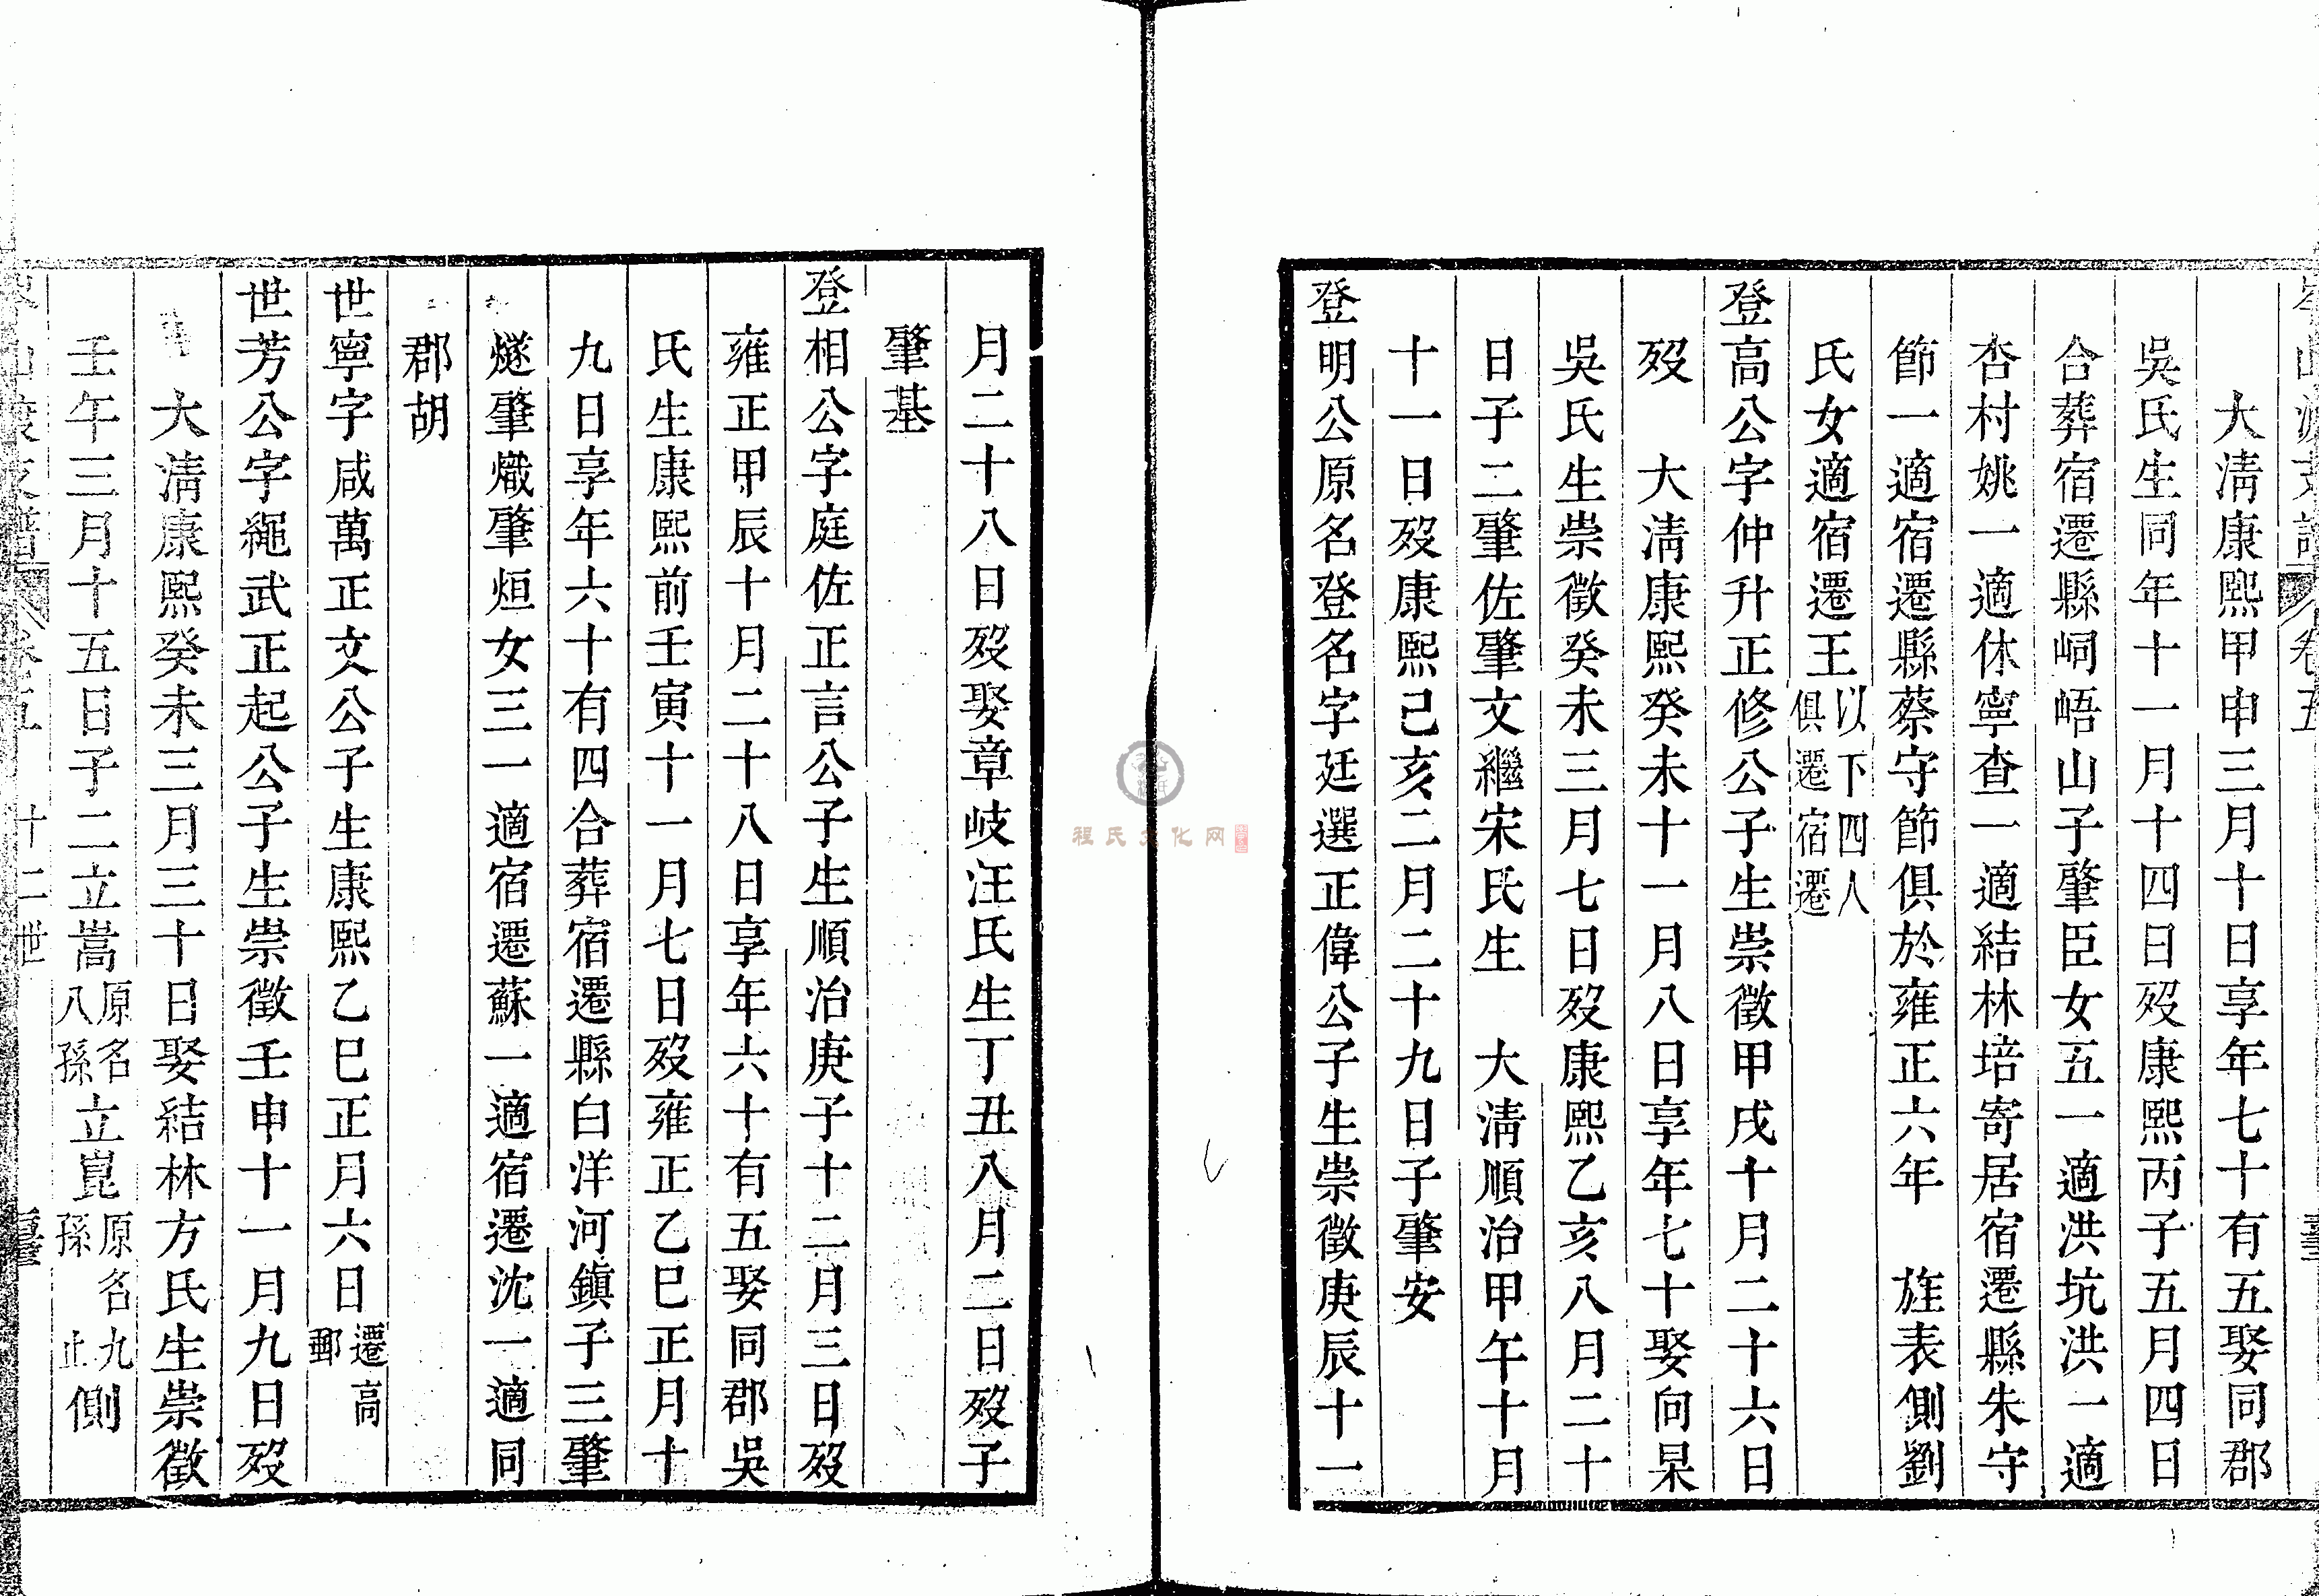 大淸康熙甲申三月十日享年七十有五娶同郡
吳氏生同年十一月十四日歿康熙丙子五月四日
合葬宿遷縣峒峿山子肇臣女五一適洪坑洪一適
杏村姚一適休寧查一適結林培寄居宿遷縣朱守
節一適宿遷縣蔡守節俱於雍正六年 旌表側劉
氏女適宿遷王以下四人俱遷宿遷
登高公字仲升正修公子生崇徵甲戌十月二十六日
歿 大淸康熙癸未十一月八日享年七十娶向杲
吳氏生崇徵癸未三月七日歿康熙乙亥八月二十
日子二肇佐肇文繼宋氏生 大淸順治甲午十月
十一日歿康熙己亥二月二十九日子肇安
登明公原名登名字廷選正偉公子生崇徵庚辰十一
月二十八日歿娶章岐汪氏生丁丑八月二日歿子
肇基
登相公字庭佐正言公子生順治庚子十二月三日歿
雍正甲辰十月二十八日享年六十有五娶同郡吳
氏生康熙前壬寅十一月七日歿雍正乙巳正月十
九日享年六十有四合葬宿遷縣白洋河鎭子三肇
燧肇熾肇烜女三一適宿遷蘇一適宿遷沈一適同
郡胡
世寧字咸萬正文公子生康熙乙巳正月六日遷高郵
世芳公字繩武正起公子生崇徵壬申十一月九日歿
大淸康熙癸未三月三十日娶結林方氏生崇徵
壬午三月十五日子二立嵩原名八孫立崑原名九孫止側
卷五 十二世